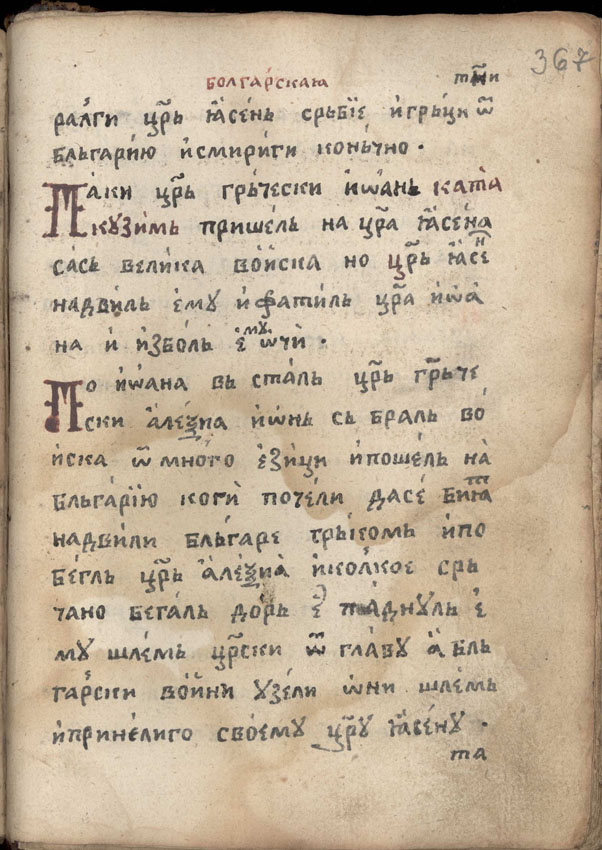 болга́рскаѧ
367
ра́лги цр҃ь ꙗ҆се́нь срьбїе и҆гръци ѿ
бльгарі́ю и҆смири́ги коне́чно ·
Паки цр҃ь гръ́чески и҆ѡа́нь ката
кꙋзи́мь прише́ль на цр҃а ꙗ҆се́на
сась вели́ка во́йска но цр҃ь ꙗ҆се́н
надви́ль е҆мꙋ и҆ фати́ль цр҃а и҆ѡа́
на и҆ и҆збо́ль е҆мꙋ ѡ҆чи ·
По и҆ѡа́на въ ста́ль цр҃ь гръ́че
ски а҆ле́ѯїа и҆ѡ́нь съ бра́ль во́
иска ѿ мно́го е҆зи́ци и҆поше́ль на
бльга́рїю коги̏ поче́ли дасе́ бию́т
надви́ли бльга́ре гръ́комь и҆по
бе́гль цр҃ь а҆ле́ѯїа и҆ко́лкое сръ
чано бега́ль до́рь е҆ па́днꙋль е҆
мꙋ шле́мь цр҃ски ѿ гла́вꙋ а҆ бль
га́рски во́йни ꙋзе́ли ѡ҆ни шле́мь
и҆прине́лиго свое́мꙋ цр҃ꙋ ꙗ҆се́нꙋ ·
та